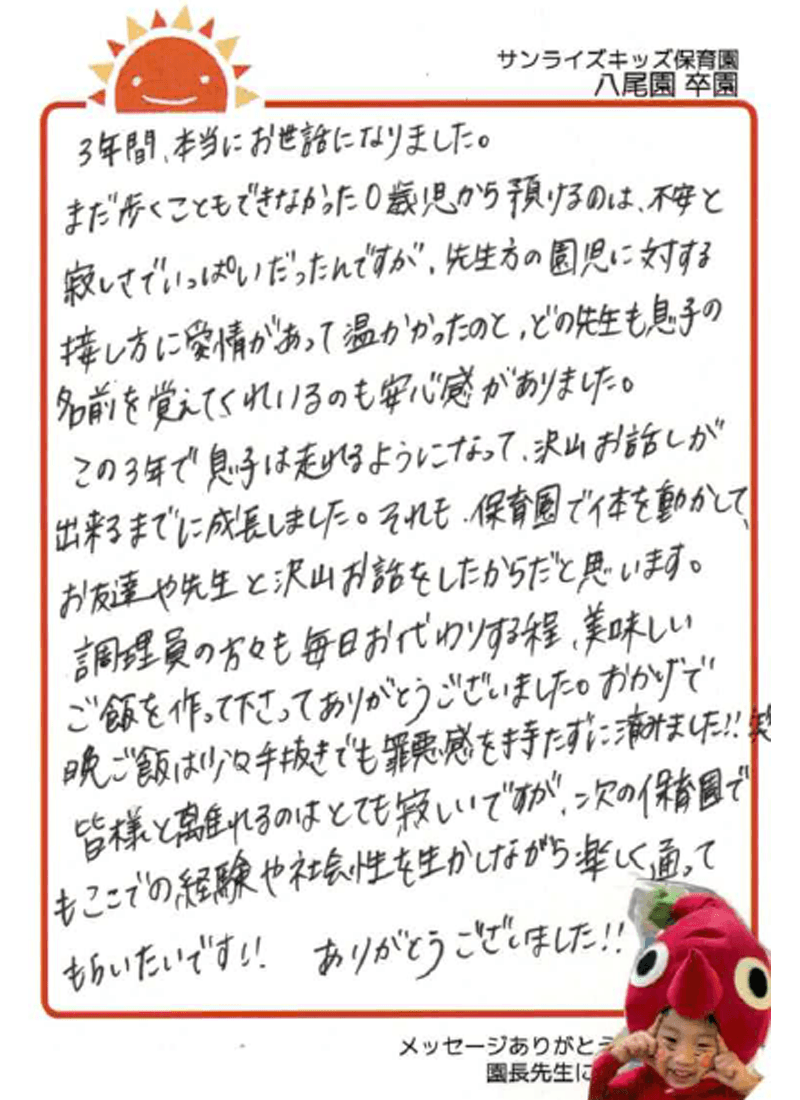 サンライズキッズ保育園
八尾園 卒園
3年間、本当にお世話になりました。
まだ歩くこともできなかった0歳児から預けるのは、不安と
寂しさでいっぱいだったんですが、先生方の園児に対する
接し方に愛情があって温かかったのと、どの先生も息子の
名前を覚えてくれいるのも安心感がありました。
この3年で息子は走れるようになって、沢山お話しが
出来るまでに成長しました。それも、保育園で体を動かして、
お友達や先生と沢山お話をしたからだと思います。
調理員の方々も毎日お代わりする程、美味しい
ご飯を作って下さってありがとうございました。おかげで
晩ご飯は少々手抜きでも罪悪感を持たずに済みました!! 笑
皆様と離れるのはとても寂しいですが、次の保育園で
もここでの経験や社会性を生かしながら楽しく通って
もらいたいです!! ありがとうございました!!
メッセージありがとう
園長先生に